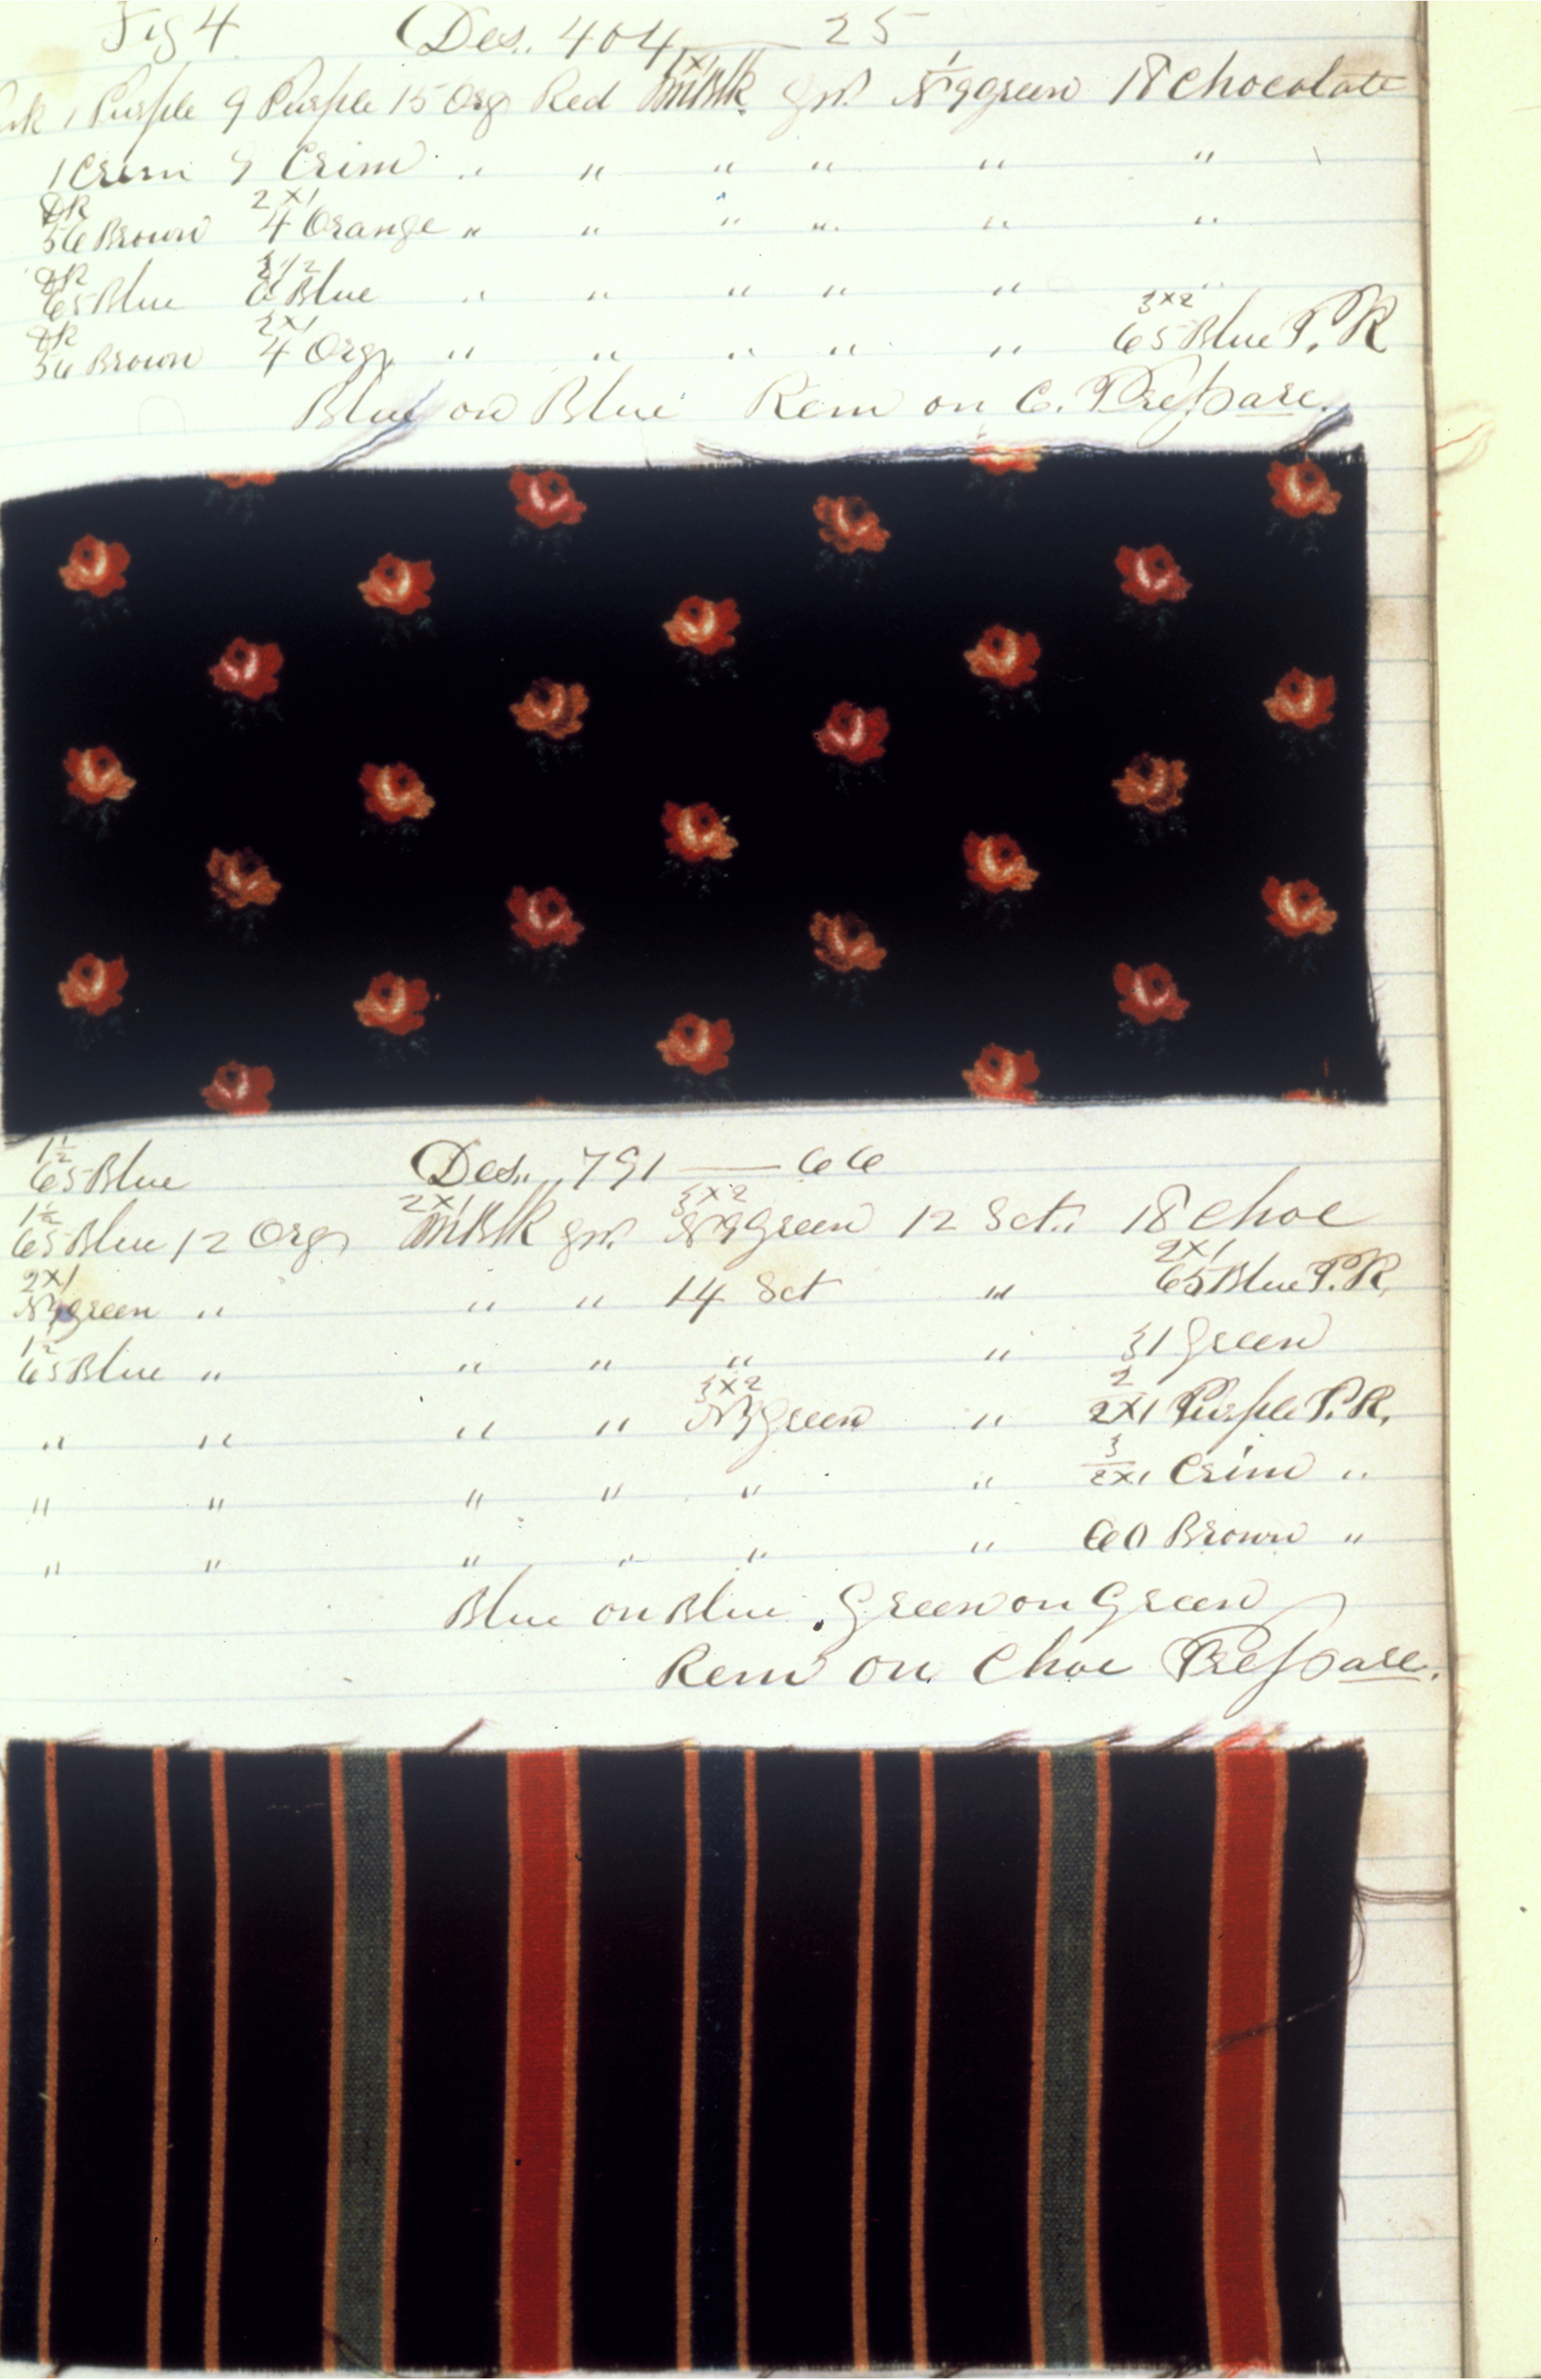 Fig 4 Des. 404 — 25
1 Purple 9 Purple 15 Org Red 1x1 Blk gr. 1 green 18 Chocolate
1 Crim 9 Crim " " " " " "
DK 2x1
56 Brown 4 Orange " " " " " "
DK 3 1/2
65 Blue 6 Blue " " " " " "
DK 2x1 3x2
56 Brown 4 Org " " " " " 65 Blue P.R
Blue on Blue Rem on C. Prepare.
1½
65 Blue Des. 791 — 66
1½ 2x1 3x2
65 Blue 12 Org Blk gr. Green 12 Sct. 18 Choc
2x1 2x1
green " " " 14 Sct " 65 Blue P.R.
1½
65 Blue " " " " " 31 Green
3x2 2
" " " " Green " 2x1 Purple P.R.
3
" " " " " " 2x1 Crim "
" " " " " " 60 Brown "
Blue on Blue. Green on Green
Rem on Choc Prepare.